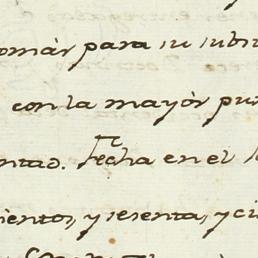 omár para su subsi
con la mayór pun
ntad. Fecha en el
ientos, y sesenta, y ci